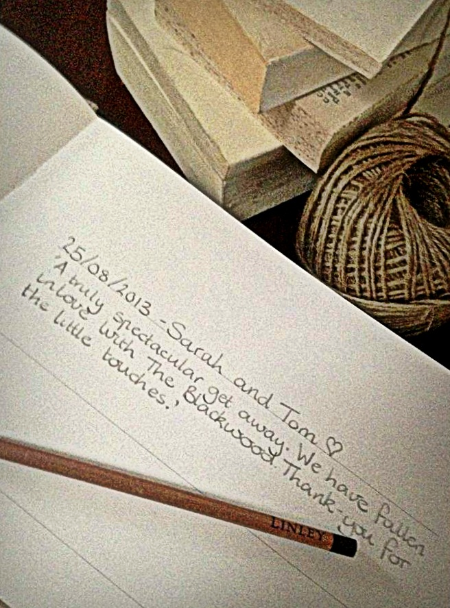 25/08/2013 - Sarah and Tom ♡
'A truly spectacular get away. We have fallen
in love with The Blackwood Thank-you for
the little touches.'
LINLEY